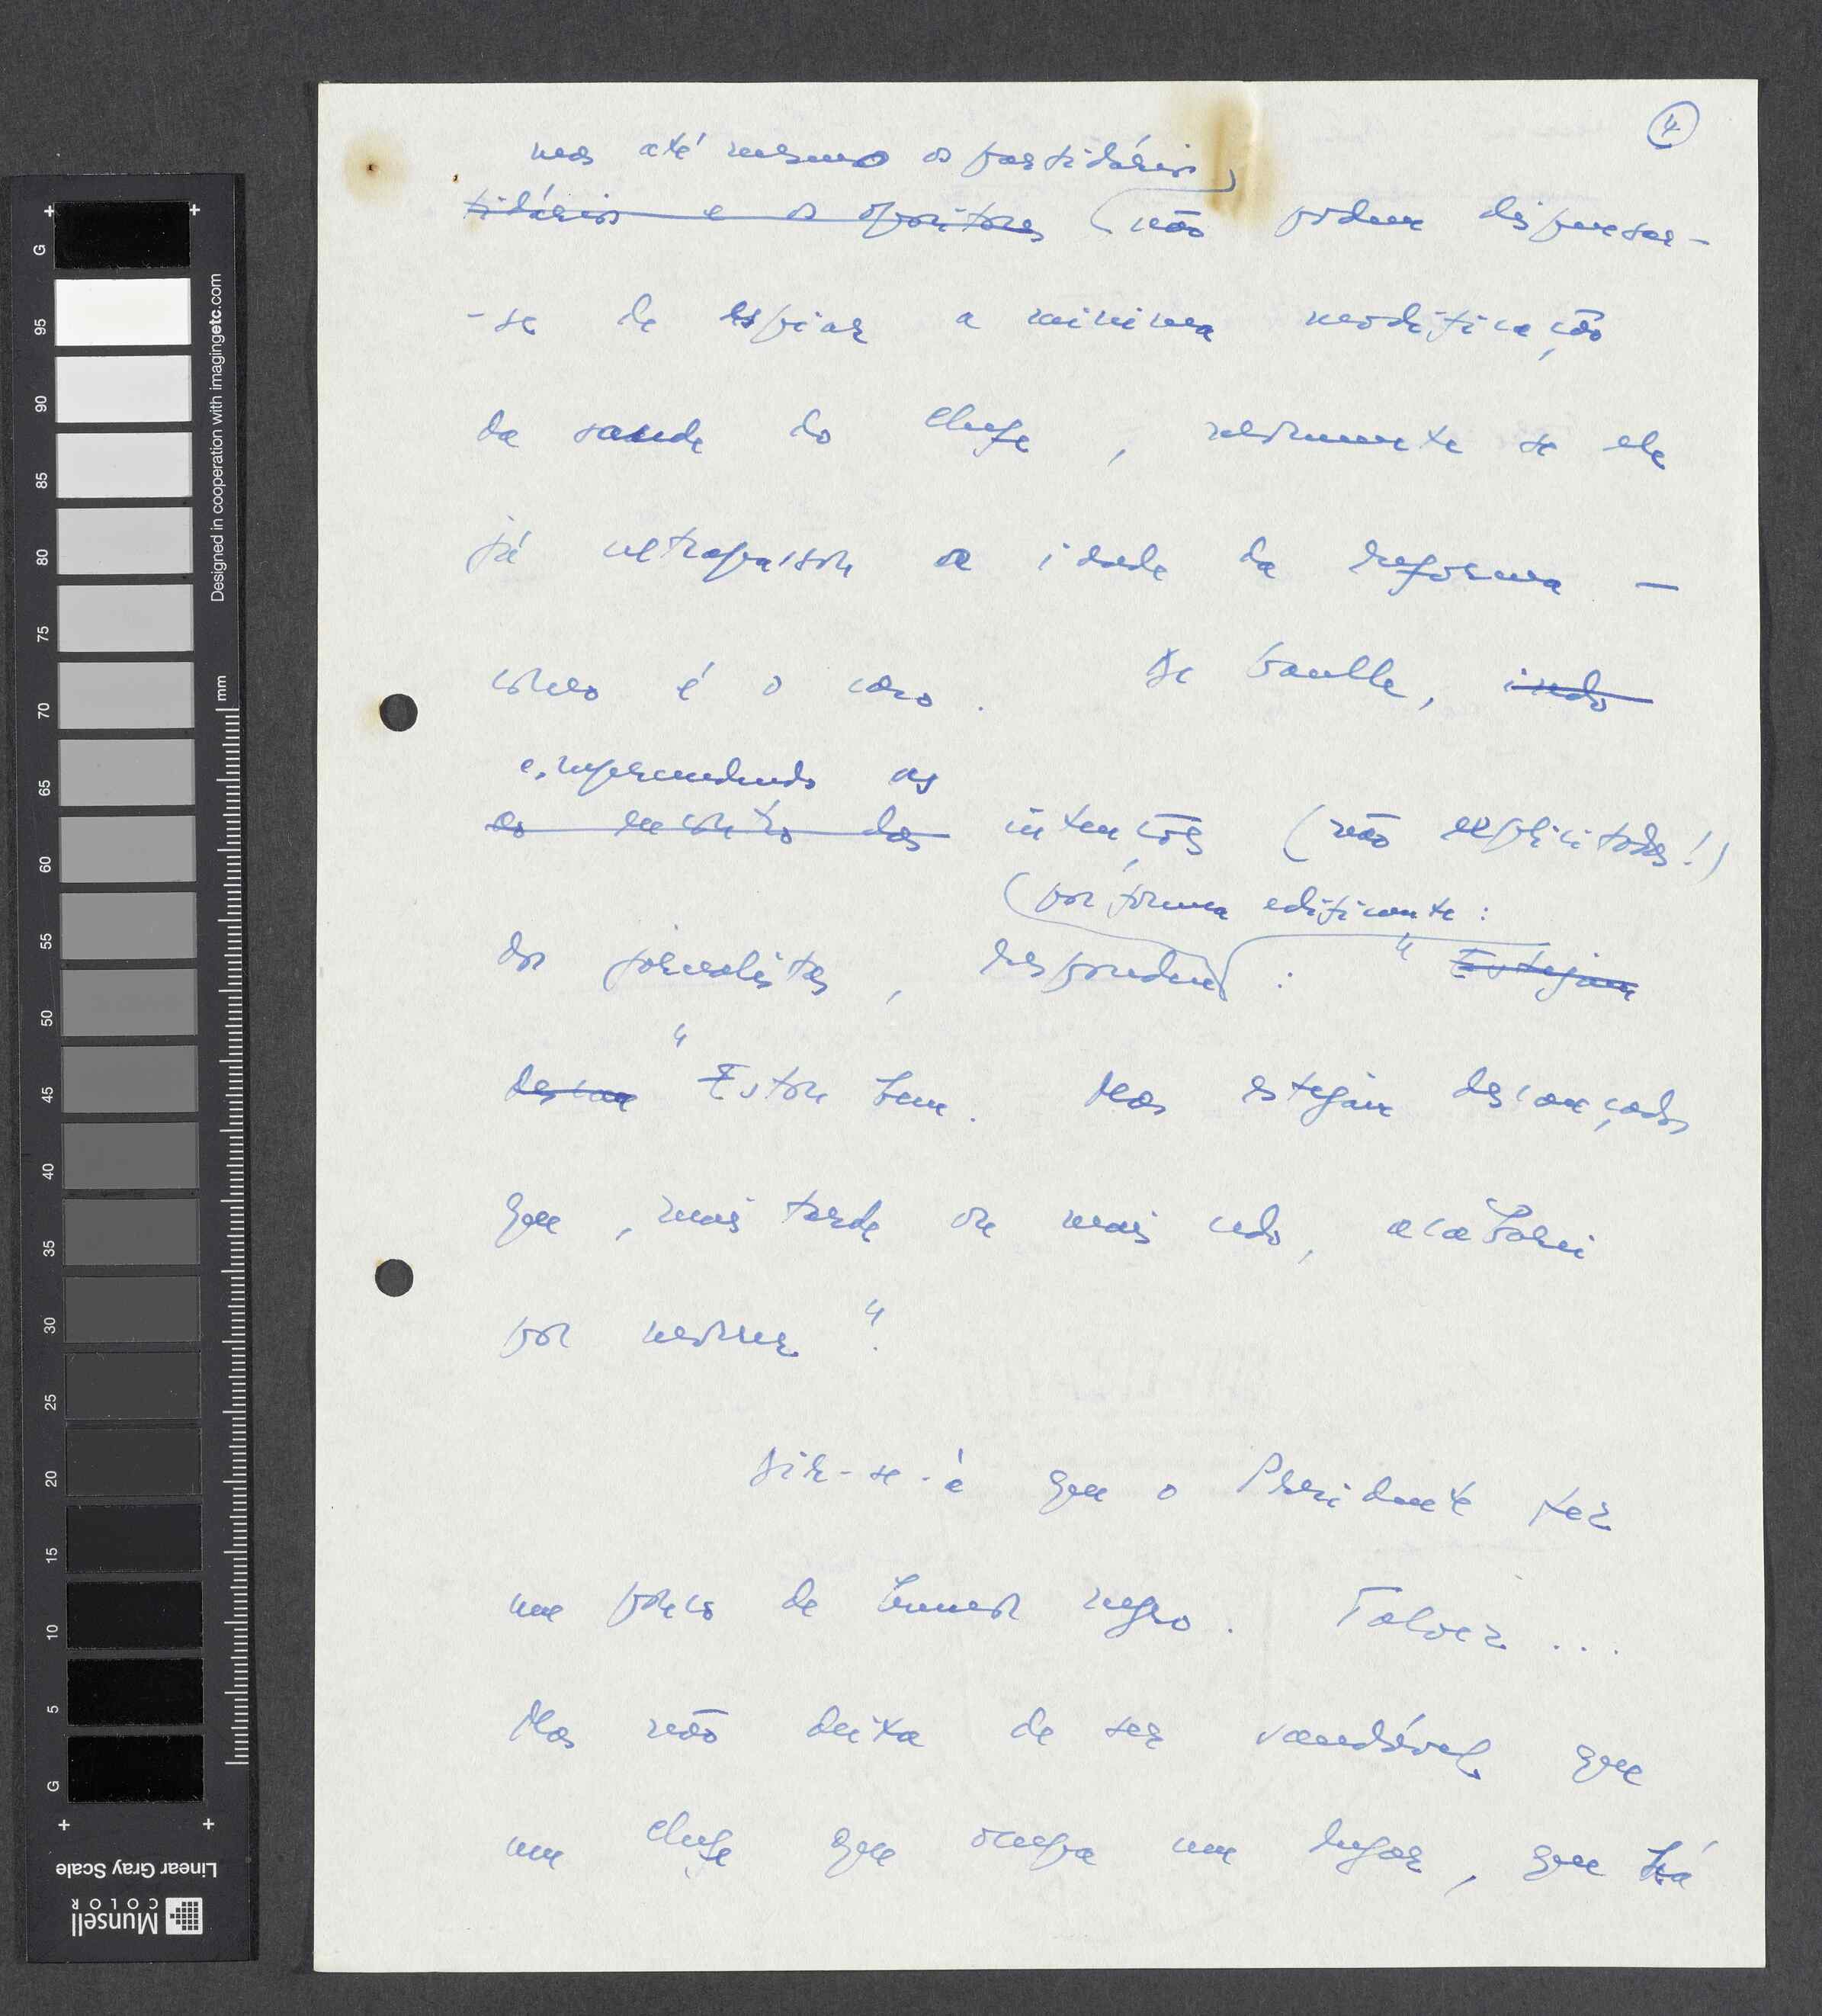 4
mas até mesmo os partidários
tidários e os opositores não podem dispensar-
-se de espiar a minima modificação
da saude do chefe, mormente se ele
já ultrapassou a idade da reforma —
como é o caso. De Gaulle, indo
e, repreendendo as
ao encontro das intenções (não explicitadas!)
por forma edificante:
dos jornalistas, respondeu : " Estejam
descan " Estou bem. Mas estejam descançados
que, mais tarde ou mais cedo, acabarei
por morrer".
Dir-se-á que o Presidente fez
um pouco de humor negro. Talvez...
Mas não deixa de ser saudável que
um chefe que ocupa um lugar, que há
G 95 90 85 80 75 70 65 60 55 50 45 40 35 30 25 20 15 10 5 G
mm
Designed in cooperation with imagingetc.com
Linear Gray Scale
Munsell
COLOR